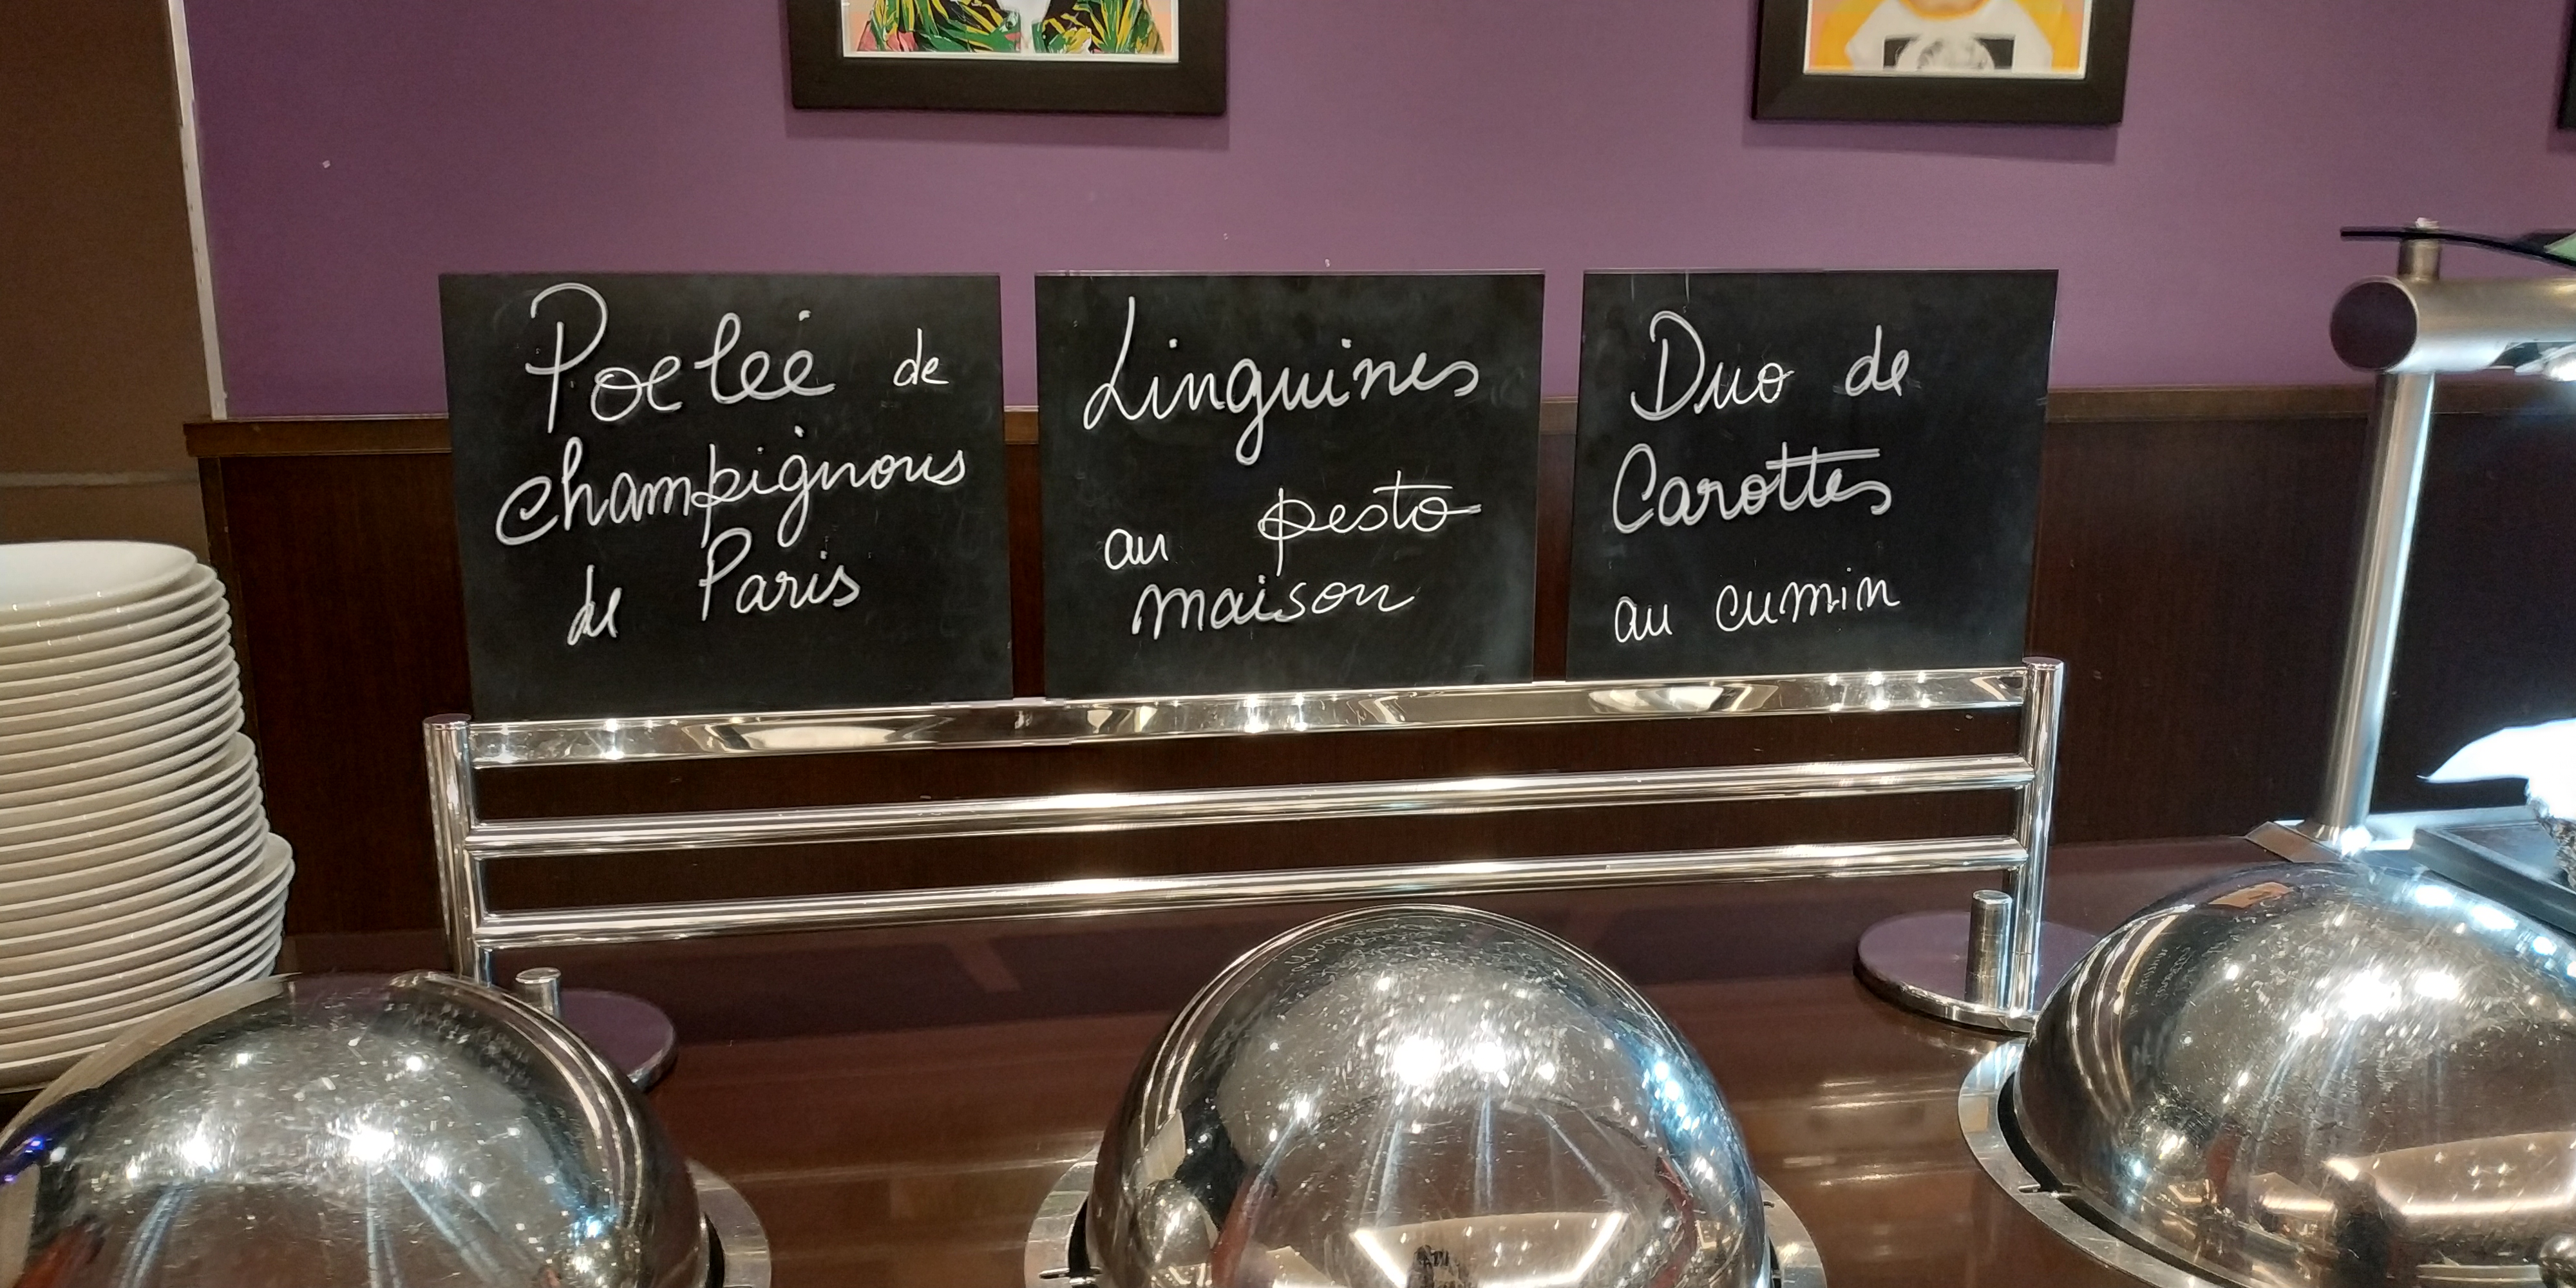 Poelée de
champignons
de Paris
Linguines
au pesto
maison
Duo de
Carottes
au cumin